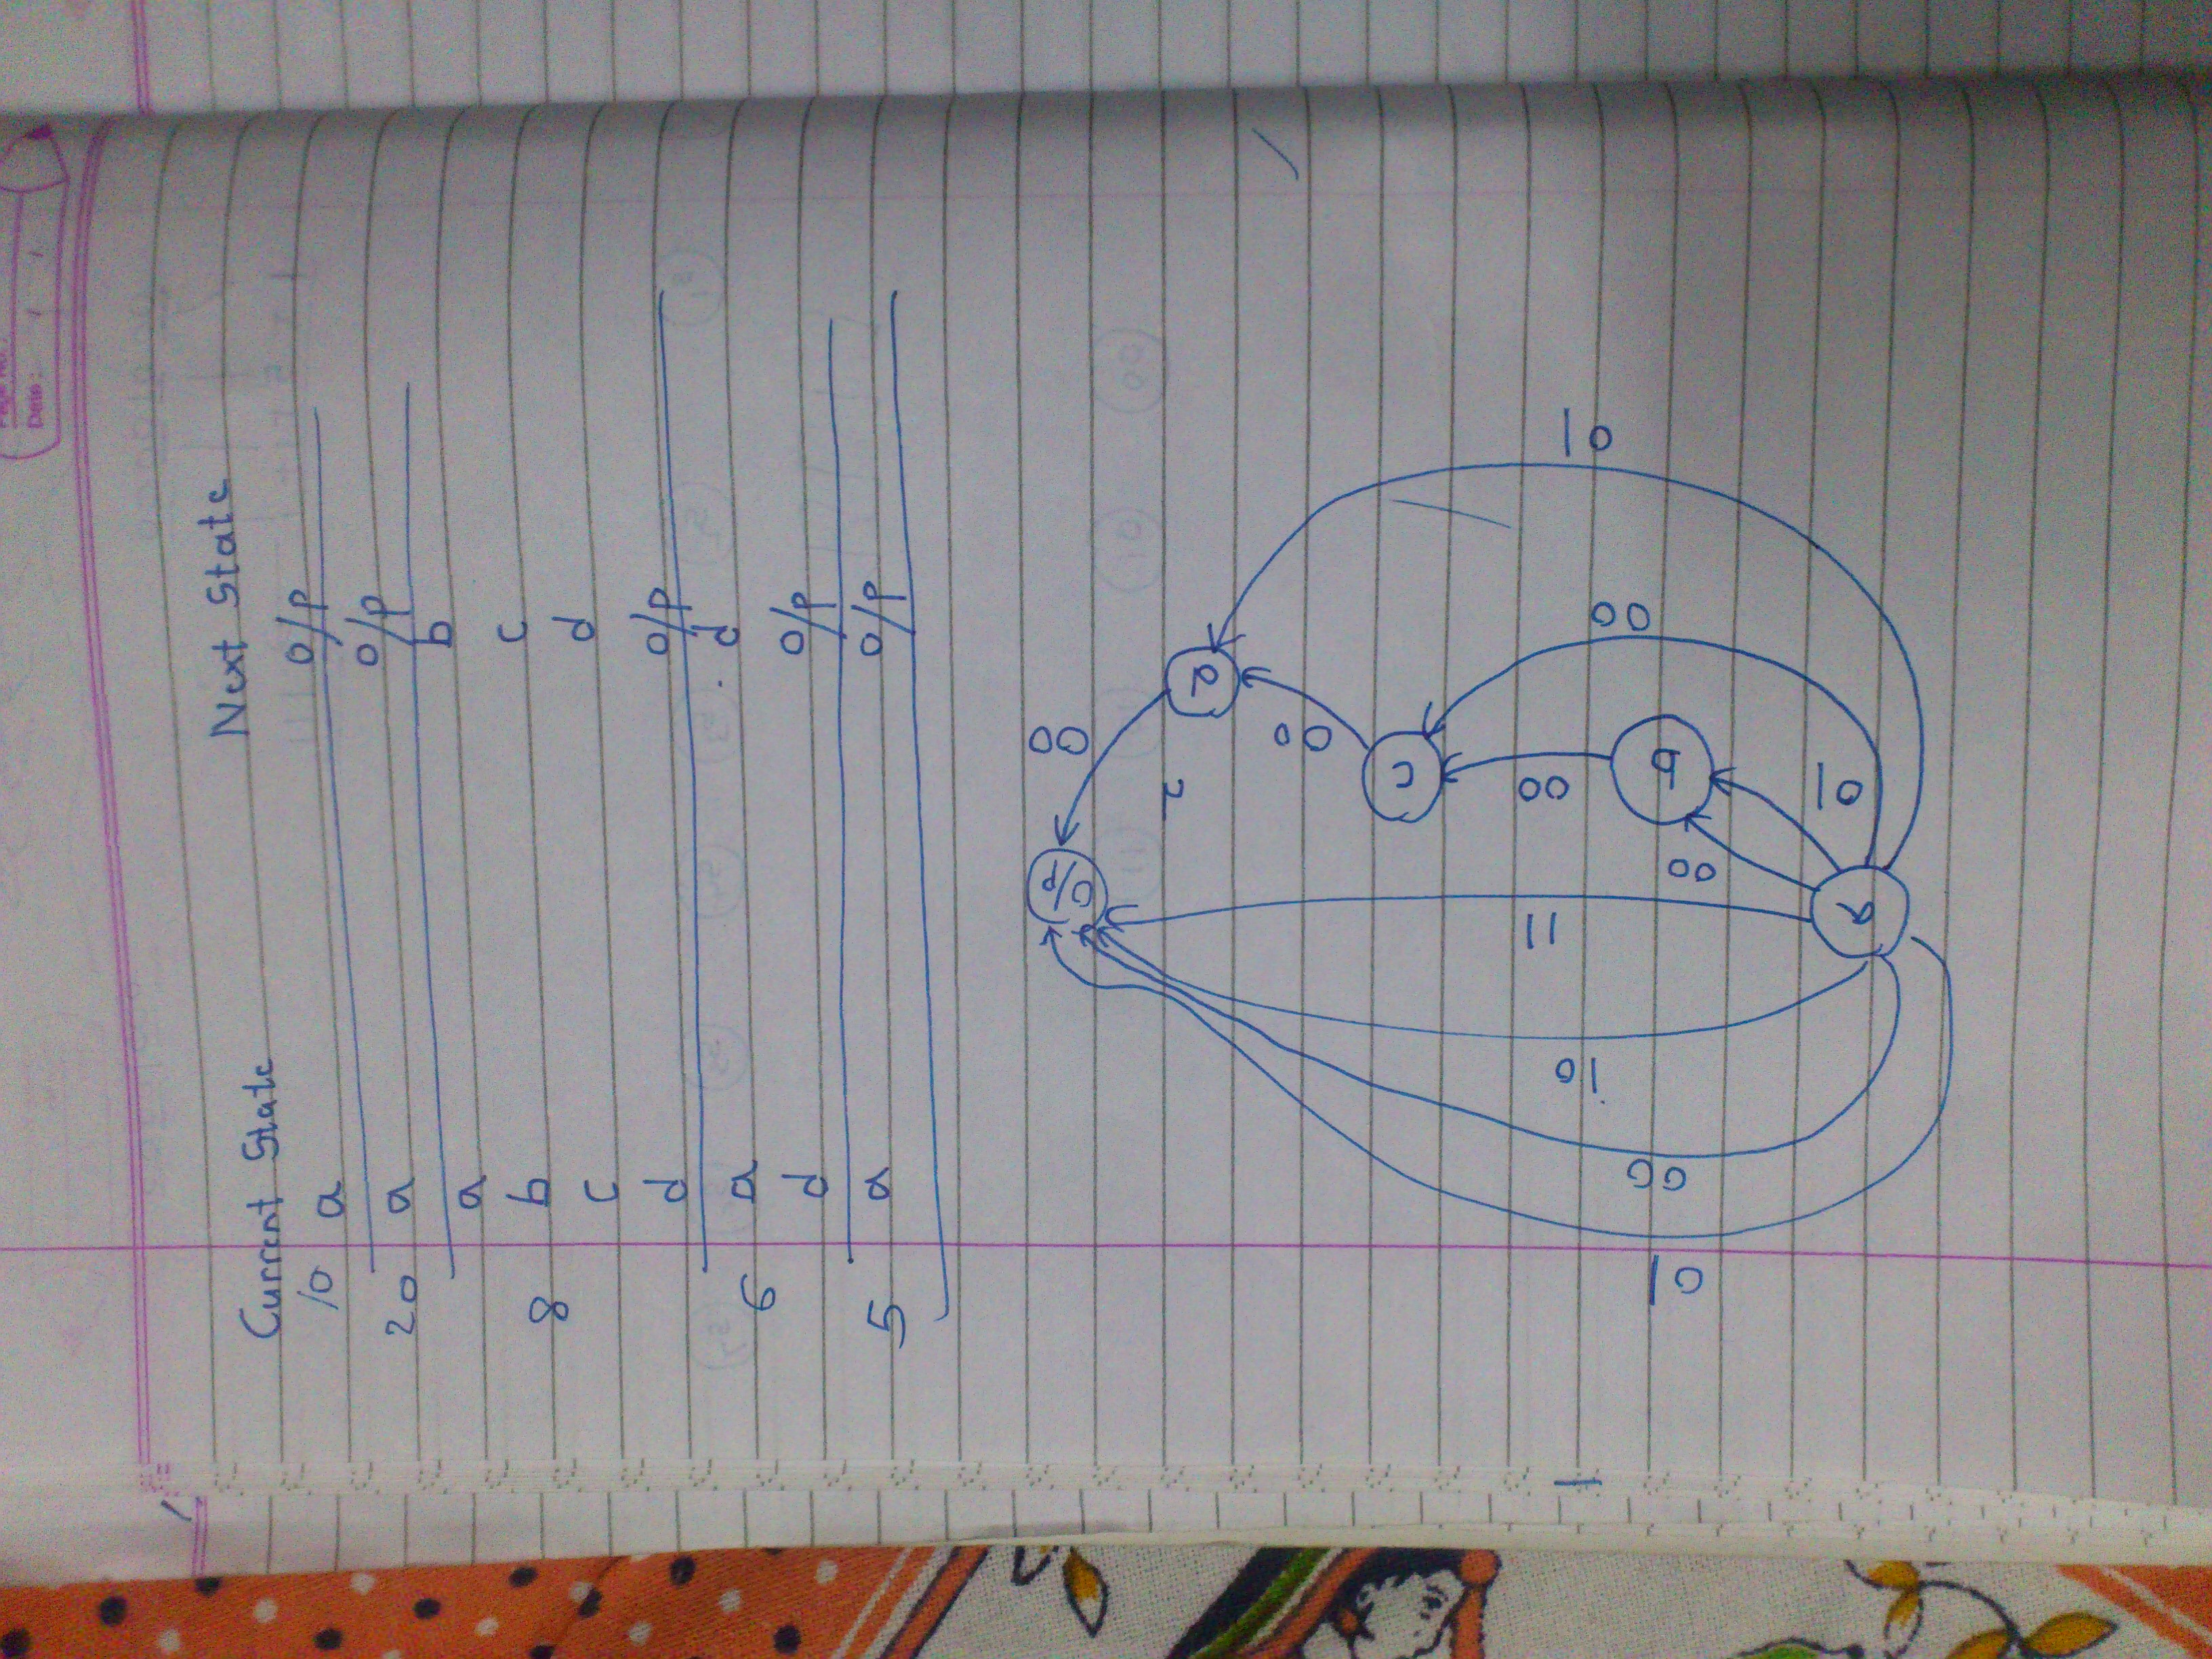 Page No.:
Date:
Current State Next State
10 a O/P
20 a O/P
a b
8 b c
c d
d O/P
6 a d
d O/P
5 a O/P
O/P
00
a
2
00
c
00
b
00
10
a
11
10
00
01
00
01